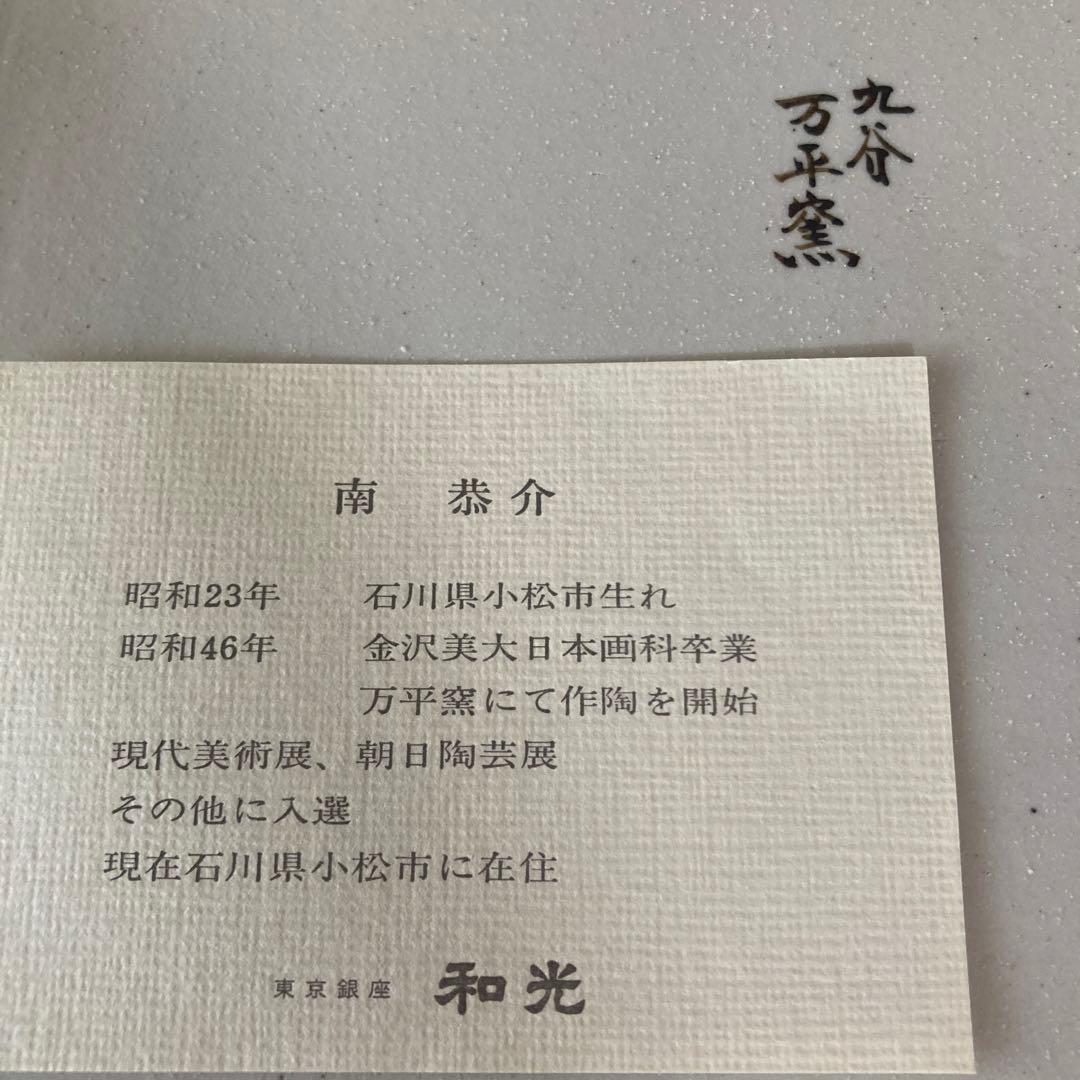 九谷
万平窯
南 恭介
昭和23年 石川県小松市生れ
昭和46年 金沢美大日本画科卒業
万平窯にて作陶を開始
現代美術展、朝日陶芸展
その他に入選
現在石川県小松市に在住
東京銀座 和光